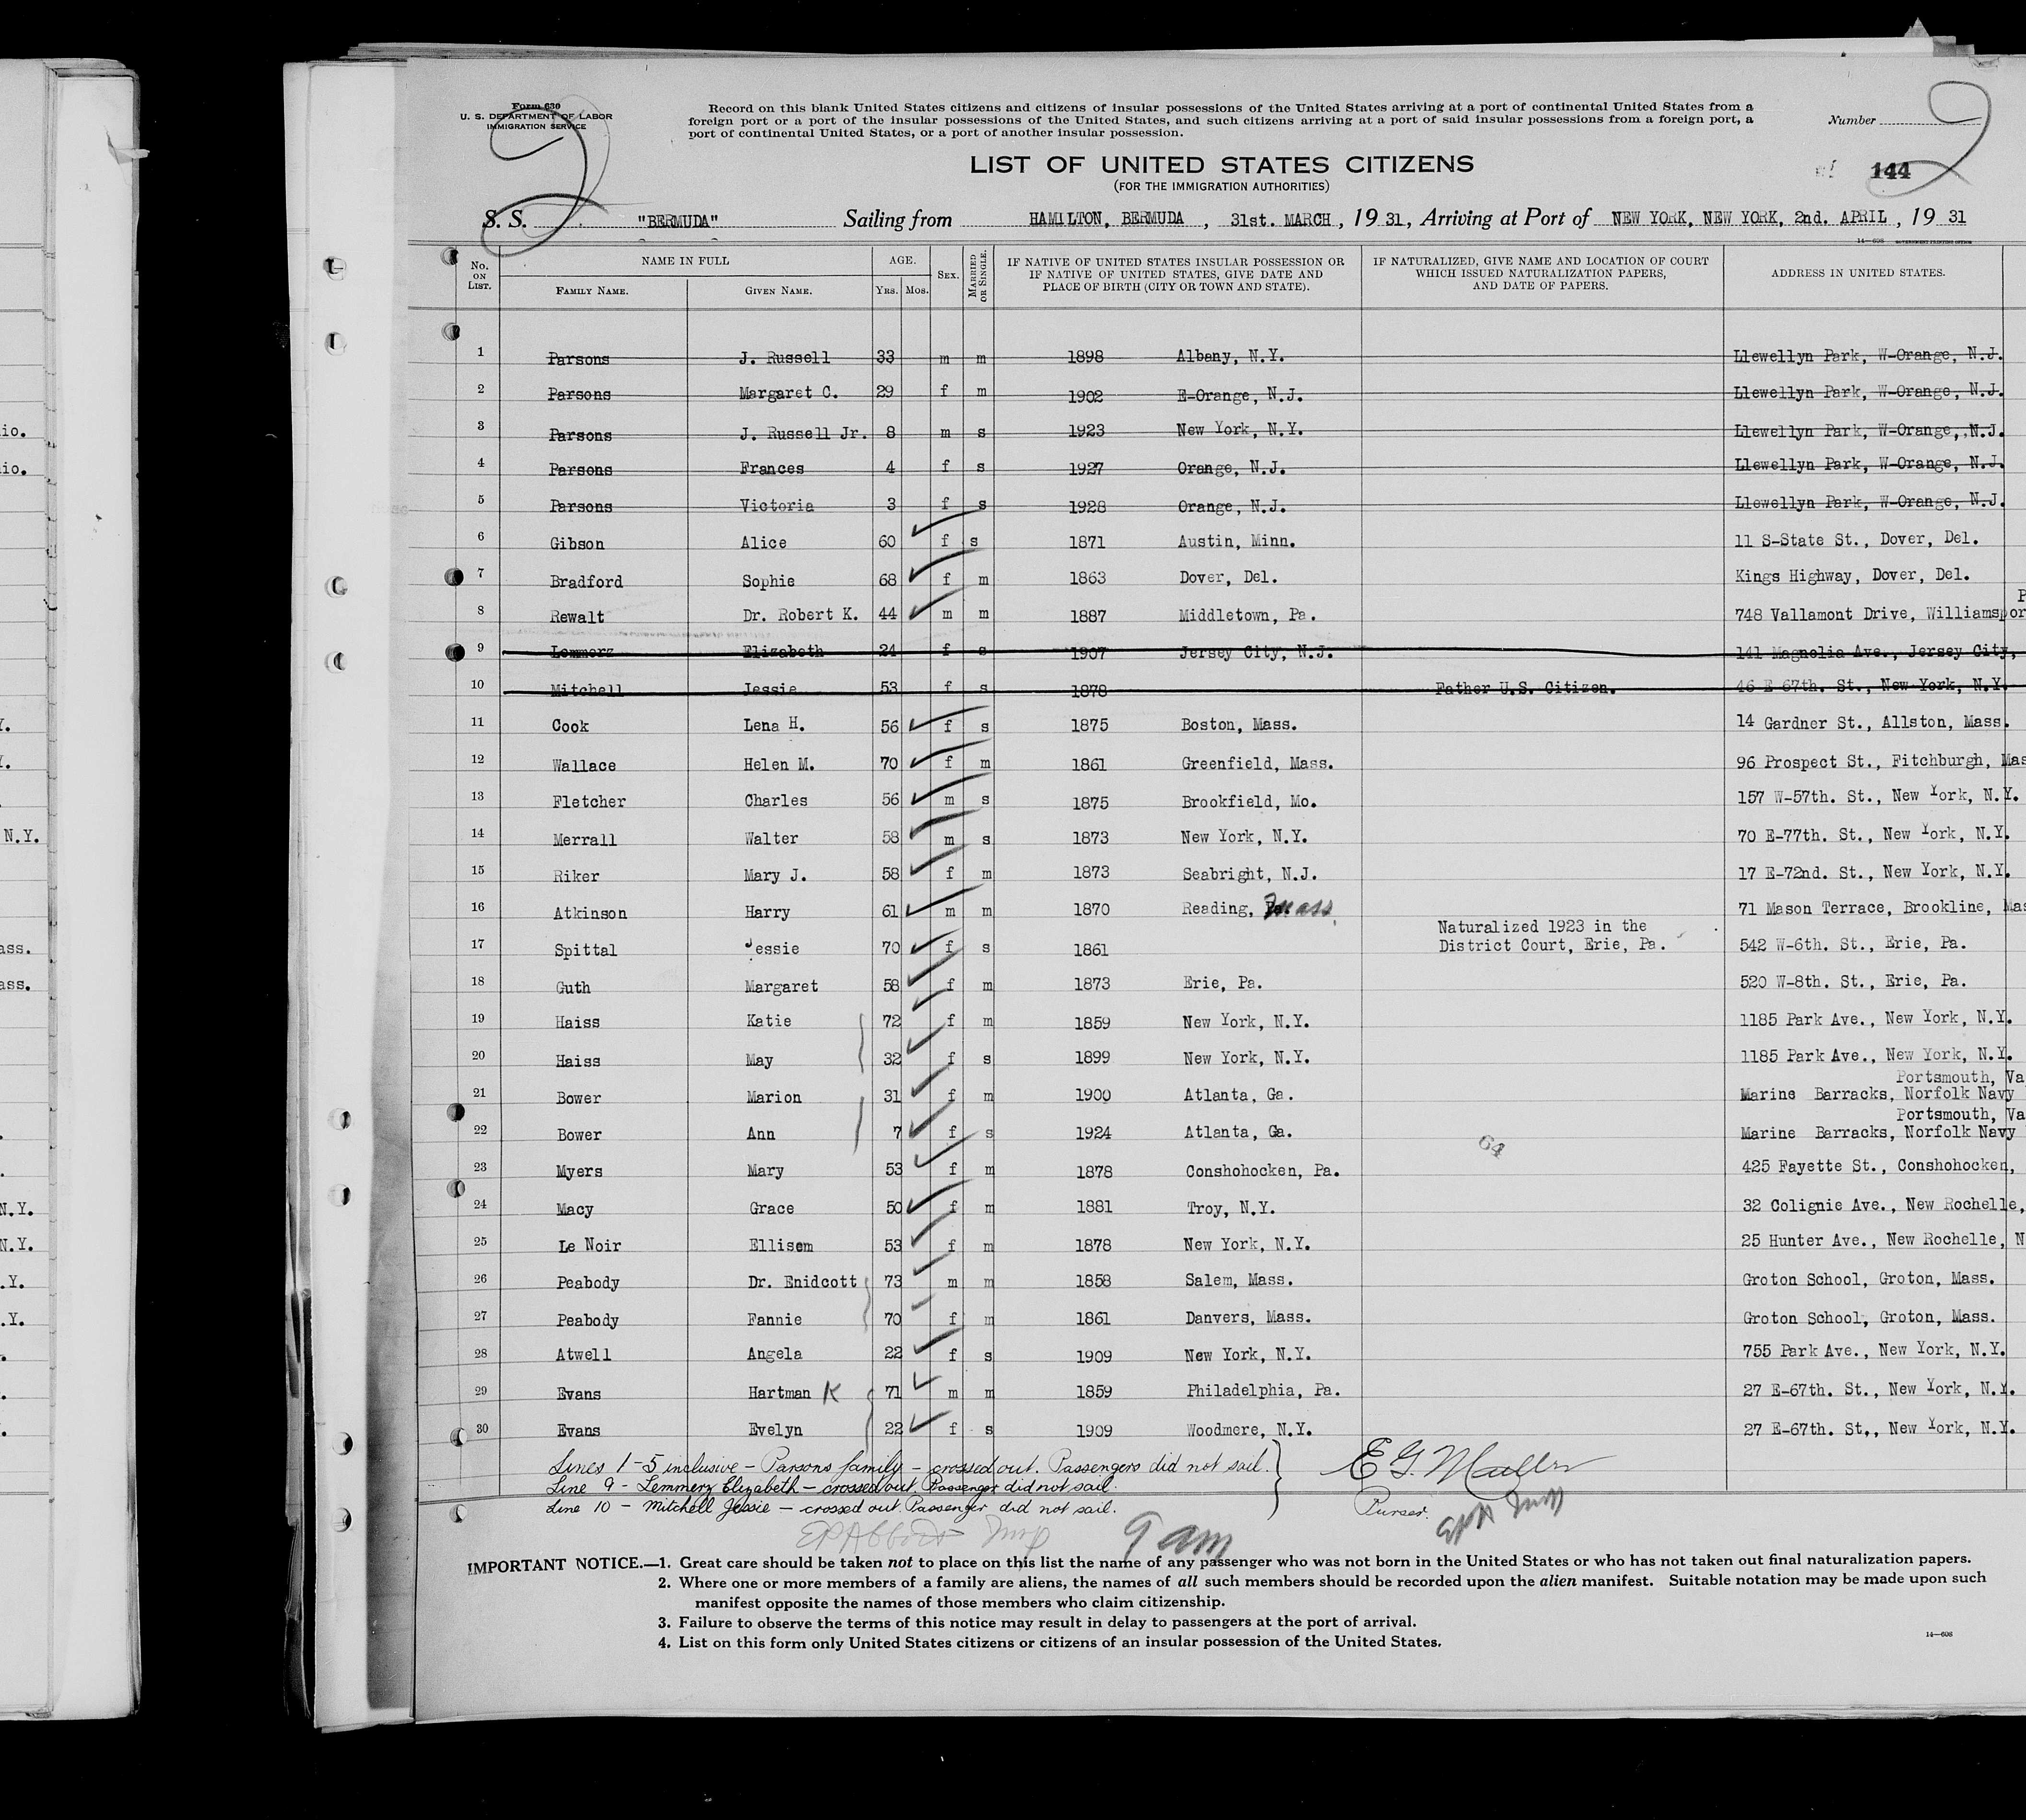 Form 630
U. S. DEPARTMENT OF LABOR
IMMIGRATION SERVICE
Record on this blank United States citizens and citizens of insular possessions of the United States arriving at a port of continental United States from a
foreign port or a port of the insular possessions of the United States, and such citizens arriving at a port of said insular possessions from a foreign port, a
port of continental United States, or a port of another insular possession.
Number
LIST OF UNITED STATES CITIZENS
(FOR THE IMMIGRATION AUTHORITIES)
144
S. S. "BERMUDA" Sailing from HAMILTON, BERMUDA, 31st. MARCH, 19 31, Arriving at Port of NEW YORK, NEW YORK, 2nd. APRIL, 19 31
No. ON LIST. NAME IN FULL FAMILY NAME. GIVEN NAME. AGE. YRS. MOS. SEX. MARRIED OR SINGLE. IF NATIVE OF UNITED STATES INSULAR POSSESSION OR IF NATIVE OF UNITED STATES, GIVE DATE AND PLACE OF BIRTH (CITY OR TOWN AND STATE). IF NATURALIZED, GIVE NAME AND LOCATION OF COURT WHICH ISSUED NATURALIZATION PAPERS, AND DATE OF PAPERS. ADDRESS IN UNITED STATES.
1 Parsons J. Russell 33 m m 1898 Albany, N.Y. Llewellyn Park, W-Orange, N.J.
2 Parsons Margaret C. 29 f m 1902 E-Orange, N.J. Llewellyn Park, W-Orange, N.J.
3 Parsons J. Russell Jr. 8 m s 1923 New York, N.Y. Llewellyn Park, W-Orange, N.J.
4 Parsons Frances 4 f s 1927 Orange, N.J. Llewellyn Park, W-Orange, N.J.
5 Parsons Victoria 3 f s 1928 Orange, N.J. Llewellyn Park, W-Orange, N.J.
6 Gibson Alice 60 f s 1871 Austin, Minn. 11 S-State St., Dover, Del.
7 Bradford Sophie 68 f m 1863 Dover, Del. Kings Highway, Dover, Del.
8 Rewalt Dr. Robert K. 44 m m 1887 Middletown, Pa. 748 Vallamont Drive, Williamspor
9 Lemmerz Elizabeth 24 f s 1907 Jersey City, N.J. 141 Magnolia Ave., Jersey City,
10 Mitchell Jessie 53 f s 1878 Father U.S. Citizen. 46 E 67th. St., New York, N.Y.
11 Cook Lena H. 56 f s 1875 Boston, Mass. 14 Gardner St., Allston, Mass.
12 Wallace Helen M. 70 f m 1861 Greenfield, Mass. 96 Prospect St., Fitchburgh, Mas
13 Fletcher Charles 56 m s 1875 Brookfield, Mo. 157 W-57th. St., New York, N.Y.
14 Merrall Walter 58 m s 1873 New York, N.Y. 70 E-77th. St., New York, N.Y.
15 Riker Mary J. 58 f m 1873 Seabright, N.J. 17 E-72nd. St., New York, N.Y.
16 Atkinson Harry 61 m m 1870 Reading, Mass. 71 Mason Terrace, Brookline, Mas
17 Spittal Jessie 70 f s 1861 Naturalized 1923 in the District Court, Erie, Pa. 542 W-6th. St., Erie, Pa.
18 Guth Margaret 58 f m 1873 Erie, Pa. 520 W-8th. St., Erie, Pa.
19 Haiss Katie 72 f m 1859 New York, N.Y. 1185 Park Ave., New York, N.Y.
20 Haiss May 32 f s 1899 New York, N.Y. 1185 Park Ave., New York, N.Y.
21 Bower Marion 31 f m 1900 Atlanta, Ga. Marine Barracks, Norfolk Navy Portsmouth, Va
22 Bower Ann 7 f s 1924 Atlanta, Ga. Marine Barracks, Norfolk Navy Portsmouth, Va
64
23 Myers Mary 53 f m 1878 Conshohocken, Pa. 425 Fayette St., Conshohocken,
24 Macy Grace 50 f m 1881 Troy, N.Y. 32 Colignie Ave., New Rochelle,
25 Le Noir Ellisem 53 f m 1878 New York, N.Y. 25 Hunter Ave., New Rochelle, N
26 Peabody Dr. Enidcott 73 m m 1858 Salem, Mass. Groton School, Groton, Mass.
27 Peabody Fannie 70 f m 1861 Danvers, Mass. Groton School, Groton, Mass.
28 Atwell Angela 22 f s 1909 New York, N.Y. 755 Park Ave., New York, N.Y.
29 Evans Hartman K 71 m m 1859 Philadelphia, Pa. 27 E-67th. St., New York, N.Y.
30 Evans Evelyn 22 f s 1909 Woodmere, N.Y. 27 E-67th. St., New York, N.Y.
Lines 1-5 inclusive - Parsons family - crossed out. Passengers did not sail.
Line 9 - Lemmerz Elizabeth - crossed out. Passenger did not sail.
Line 10 - Mitchell Jessie - crossed out. Passenger did not sail.
Purser.
9 am
IMPORTANT NOTICE.—1. Great care should be taken not to place on this list the name of any passenger who was not born in the United States or who has not taken out final naturalization papers.
2. Where one or more members of a family are aliens, the names of all such members should be recorded upon the alien manifest. Suitable notation may be made upon such
manifest opposite the names of those members who claim citizenship.
3. Failure to observe the terms of this notice may result in delay to passengers at the port of arrival.
4. List on this form only United States citizens or citizens of an insular possession of the United States.
14—608